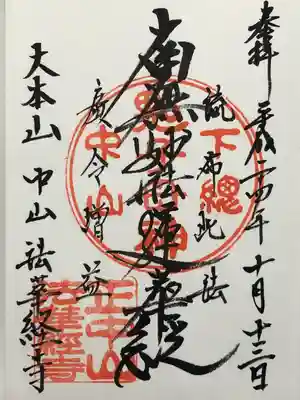 奉拝 平成二四年十月十三日
流布此法
南無妙法蓮華経
廣令増益
大本山 中山法華経寺
下總
中山
正中山
法華経寺